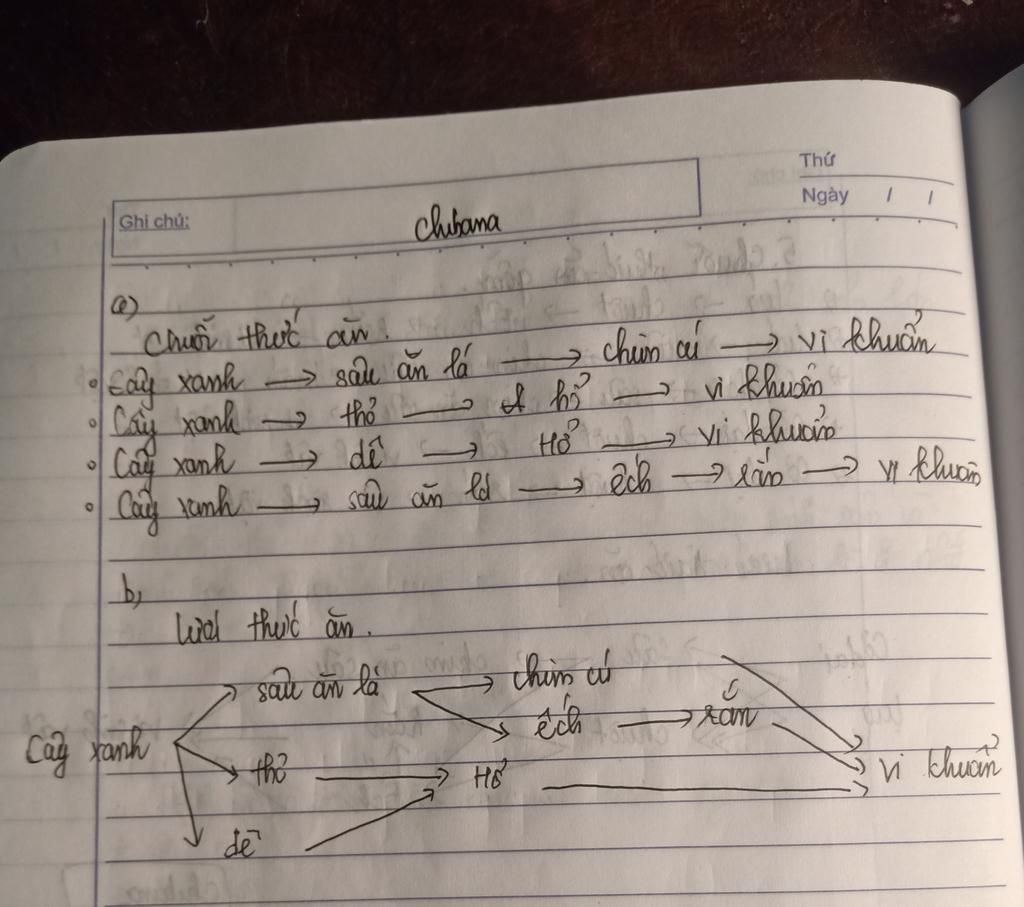 Thứ
Ngày / /
Ghi chú: Chibana
a)
Chuỗi thức ăn.
• Cây xanh → sâu ăn lá → chim cú → vi khuẩn
• Cây xanh → thỏ → hổ → vi khuẩn
• Cây xanh → dê → Hổ → vi khuẩn
• Cây xanh → sâu ăn lá → ếch → rắn → vi khuẩn
b,
Lưới thức ăn.
sâu ăn lá → chim cú
ếch → rắn
Cây xanh
vi khuẩn
thỏ → Hổ →
dê